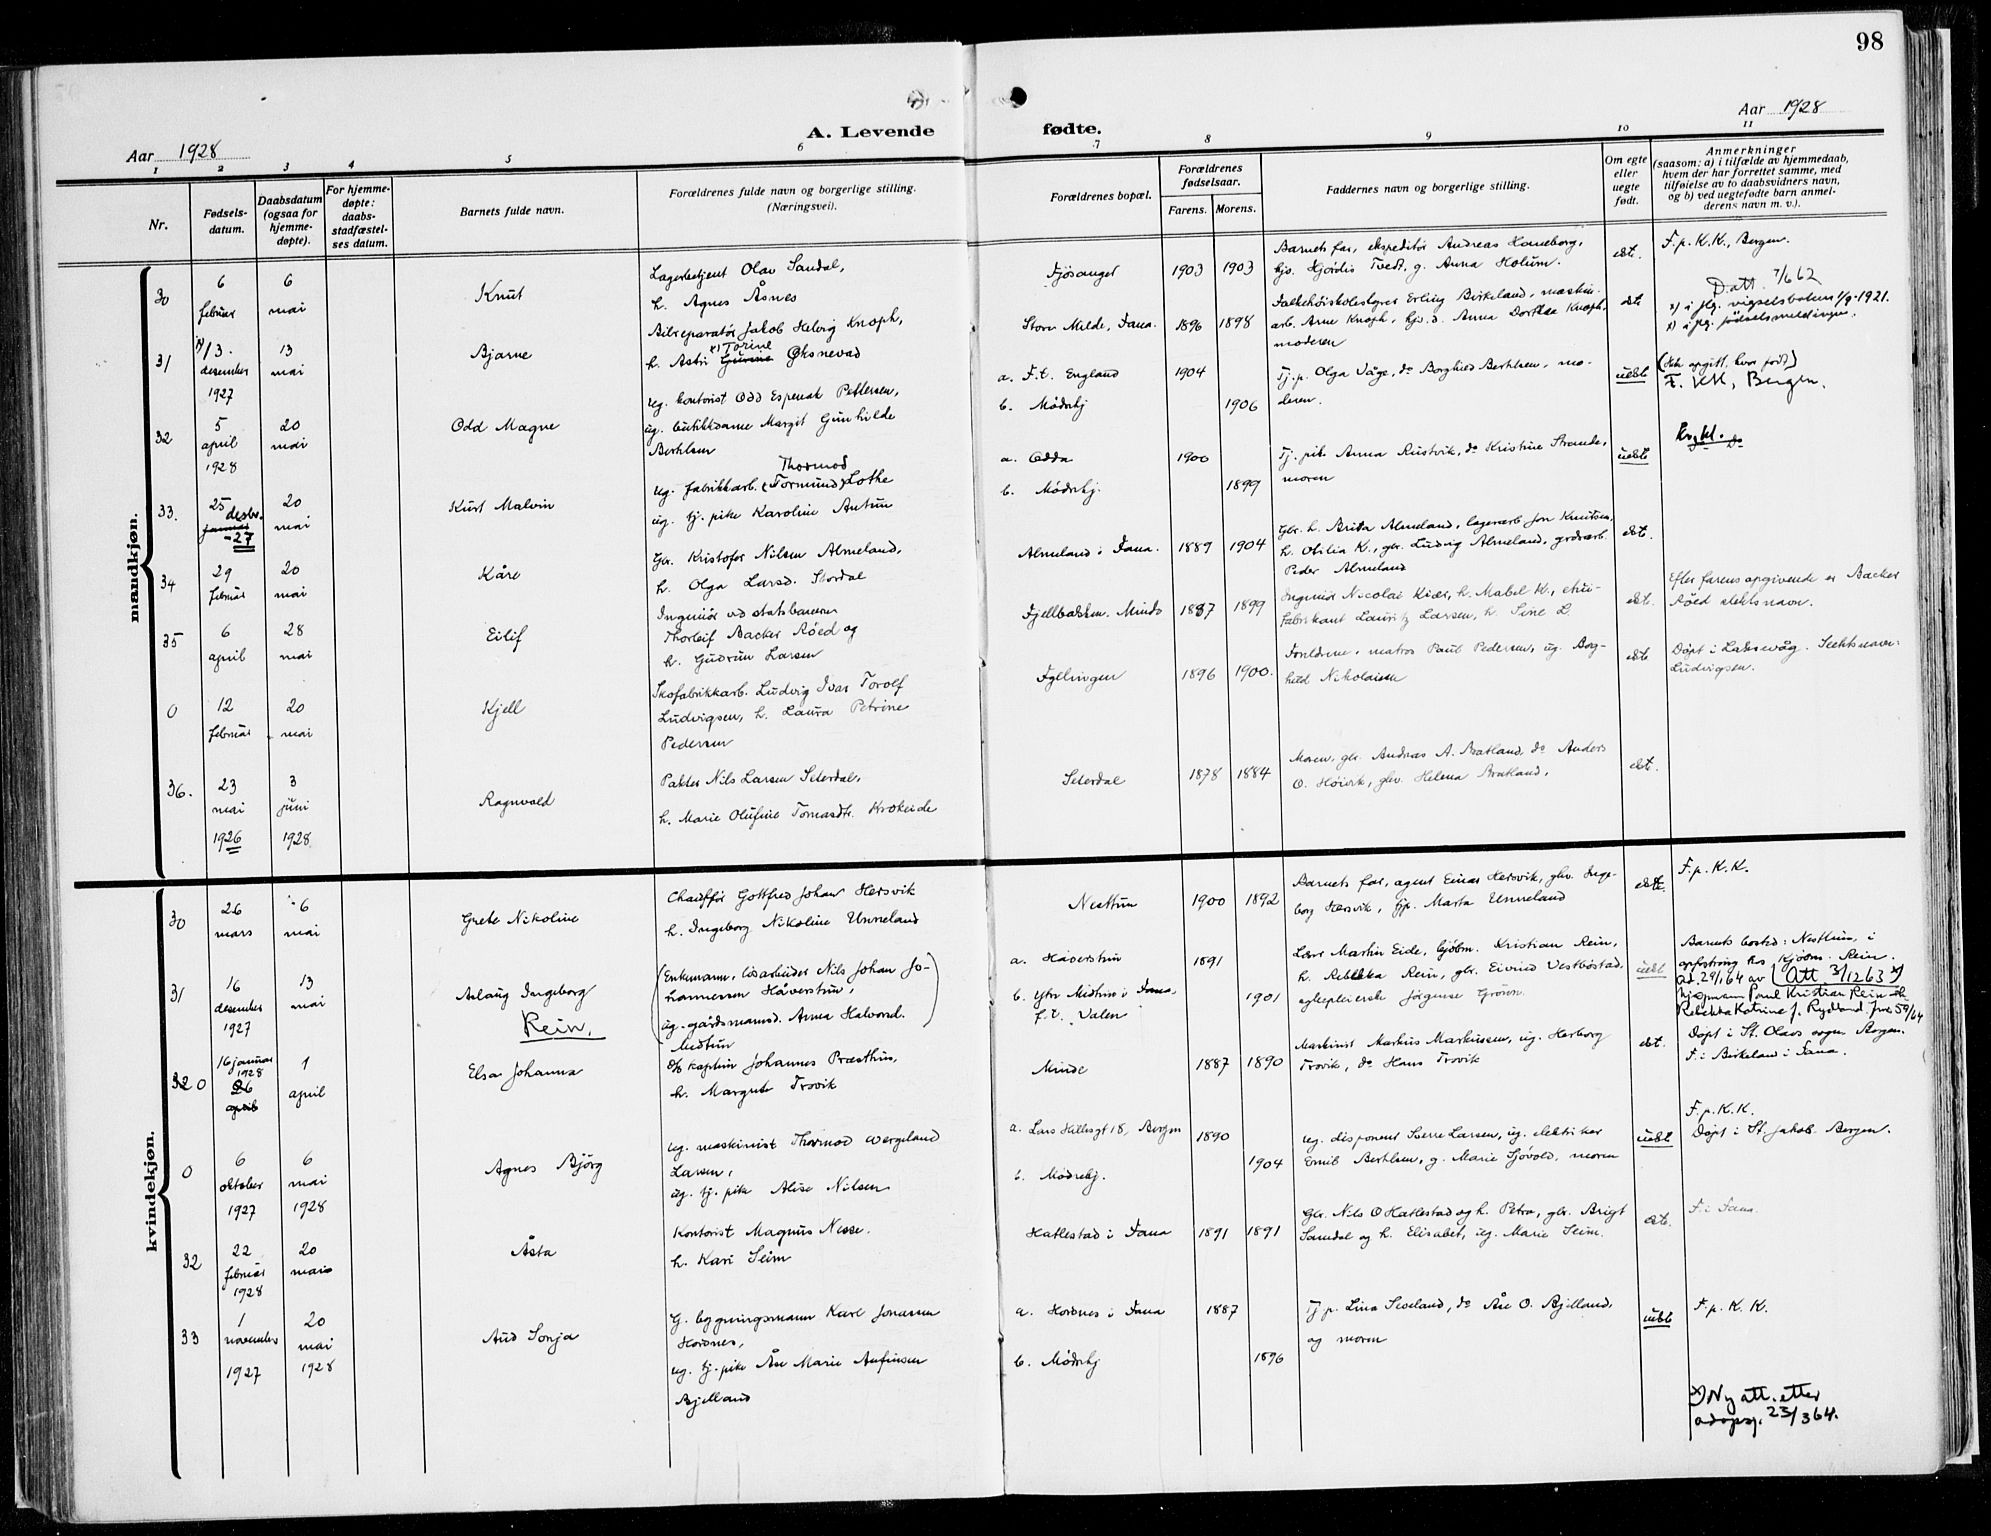 98
Aar 1928
A. Levende
fødte.
Aar 1928
1 2 3 4 5 6 7 8 9 10 11
Nr.
Fødsels-
datum.
Daabsdatum
(ogsaa for
hjemme-
døpte).
For hjemme-
døpte:
daabs-
stadfæstel-
ses datum.
Barnets fulde navn.
Forældrenes fulde navn og borgerlige stilling.
(Næringsvei).
Forældrenes bopæl.
Forældrenes
fødselsaar.
Farens. Morens.
Faddernes navn og borgerlige stilling.
Om egte
eller
uegte
født.
Anmerkninger
(saasom: a) i tilfælde av hjemmedaab,
hvem der har forrettet samme, med
tilføielse av to daabsvidners navn,
og b) ved uegtefødte barn anmel-
derens navn m. v.).
mandkjøn.
30
6
februar
6
mai
Knut
Lagerbetjent Olav Sandal,
h. Agnes Åsnes
Fjøsanger
1903 1903
Barnets far, ekspeditør Andreas Honeborg,
hjs. Hjørdis Tvedt, g. Anna Holum.
ekte.
F. p. K.K., Bergen.
31
x)13.
desember
1927
13
mai
Bjarne
Bilreparatør Jakob Helvig Knoph,
h. Astri x) Torine Øksnevad
Store Milde, Fana.
1896 1898
Folkehøiskolestyrer Erling Birkeland, maskin-
arb. Arne Knoph, hjv. d. Anna Dorthea Knoph,
moderen
ekte
Datt. 7/662
x) i flg. vigselsboken 1/9-1921.
x) i flg. fødselsmeldingen.
32
5
april
1928
20
mai
Odd Magne
ug. kontorist Odd Espenak Pettersen,
ug. butikkdame Margit Gunhilde
Berthlsen
a. F.t. England
b. Mødrehj
1904
1906
Tj. p. Olga Våge, do Borghild Berthlsen, mo-
deren.
uekte
(Ikke opgitt, hvor født)
F. KK, Bergen.
33.
25 desbr.
januar
-27
20
mai
Kurt Malvin
ug. fabrikkarb. (Tormund) Thormod Lothe
ug. tj. pike Karoline Antun
a. Odda
b. Mødrehj.
1900
1899
Tj. pike Anna Rustvik, do Kristine Strande,
moren
uekte
do
34
29
februar
20
mai
Kåre
Gbr. Kristofer Nilsen Almeland,
h. Olga Larsd. Stordal
Almeland i Fana.
1889 1904
Gbr. h. Brita Almeland, lagerarb Jon Knutsen,
h. Otilia K., gbr. Ludvig Almeland, grdarb.
Peder Almeland
ekt.
35
6
april
28
mai
Eilif
Ingeniør ved statsbanene
Thorleif Backer Røed og
h. Gudrun Larsen
Fjellbakken. Minde
1887 1899
Ingeniør Nicolai Kiær, h. Mabel K., etui-
fabrikant Lauritz Larsen, h. Sine L
ekte.
Efter farens opgivende er Backer
Røed slektsnavn.
0
12
februar
20
mai
Kjell
Skofabrikkarb. Ludvig Ivar Torolf
Ludvigsen, h. Laura Petrine
Pedersen
Fyllingen
1896 1900.
Foreldrene, matros Paul Pedersen, ug. Borg-
hild Nikolaisen
ekte
Døpt i Laksevåg. Slektsnavn:
Ludvigsen.
36.
23
mai
1926
3
juni
1928
Ragnvald
Pakter Nils Larsen Seterdal,
h. Marie Olufine Tomasdtr. Krokeide
Seterdal
1878 1884
Moren, gbr. Andreas A. Bratland, do Anders
O. Høivik, gbv. Helena Bratland,
ekt.
kvindekjøn.
30
26
mars
6
mai
Grete Nikoline
Chauffør Gottfred Johan Hersvik
h. Ingeborg Nikoline Unneland
Nesttun
1900 1892
Barnets far, agent Einar Hersvik, gbv. Inge-
borg Hersvik, tjp. Marta Unneland
ekte.
F. p. K. K.
31
16
desember
1927
13
mai
Aslaug Ingeborg
Rein.
(Enkemann, løsarbeider Nils Johan Jo-
hannessen Håverstun,
ug. gårdsmannsd. Anna Halvorsd.)
Midtun
a. Håverstun
b. Ytre Midtun i Fana,
f.t. Valen
1891
1901
Lærer Martin Eide, kjøbm. Kristian Rein,
h. Rebekka Rein, gbr. Eivind Vestbøstad,
sykepleierske Jørgine Grønn.
uekt
Barnets bosted: Nesttun, i
opfostring hos kjøbm. Rein.
ad. 29/1 64 av (Att 3/1263 x)
kjøpmann Paul Kristian Rein
Rebekka Katrine f. Rydland. Jnr 59/64
32 0
16 januar
1928
26
april
1
april
Elsa Johanna
D/S kaptein Johannes Præsthus,
h. Margrete Trovik
Minde
1887 1890
Maskinist Markus Markussen, ug. Herborg
Trovik, do Hans Trovik
ekt.
Døpt i St. Olavs sogn Bergen.
F. i Birkeland i Fana.
0
6
oktober
1927
6
mai
1928
Agnes Bjørg
ug. maskinist Thormod Wergeland
Larsen,
ug. tj. pike Alise Nilsen
a. Lars Hillesgt 18, Bergen
b. Mødrehj.
1890
1904
ug. disponent Sverre Larsen, ug. elektriker
Emil Berthlsen, g. Marie Sjøvold, moren
uekt
F. p. K. K.
Døpt i St. Jakob. Bergen.
32
22
februar
1928
20
mai
Åsta
Kontorist Magnus Nesse.
h. Kari Seim
Hatlestad i Fana
1891 1891
Gbr. Nils O Hatlestad og h. Petra, gbr. Brigt
Samdal og h. Elisabet, ug. Marie Seim.
ekte.
F. i Fana.
33
1
november
1927
20
mai
1928
Aud Sonja
G. bygningsmann Karl Jonassen
Hordnes,
ug. tj. pike Åse Marie Anfinsen
Bjelland
a. Hordnes i Fana
b. Mødrehj
1887
1896
Tj p. Lina Sveland, do Åse O. Bjelland,
og moren
uekte
F. p. K. K.
x) Ny att. etter
adopsj. 23/364.